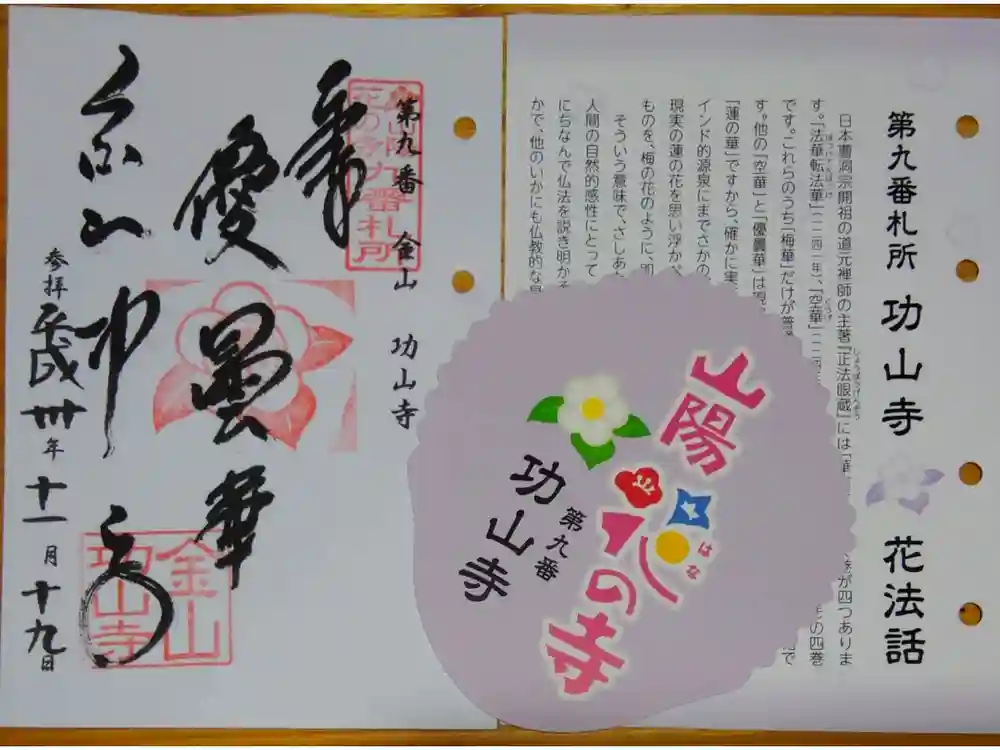 第九番札所 功山寺 花法話
日本曹洞宗開祖の道元禅師の主著『正法眼蔵』には「
が四つありま
す。「法華転法華」(一二四一年)、「空華」(一二四三
の四巻
です。これらのうち「梅華」だけが普
で
す。他の「空華」と「優曇華」は現
「蓮の華」ですから、確かに実
インド的源泉にまでさかの
現実の蓮の花を思い浮かべ
ものを、梅の花のように、即
そういう意味で、さしあた
人間の自然的感性にとって
にちなんで仏法を説き明かそ
かで、他のいかにも仏教的な
しょうぼうげんぞう
ほっけてんぼっけ
くうげ
山陽
花の寺
はな
第九番
功山寺
第九番 金山 功山寺
山陽
花の寺九番札所
奉
優曇華
金山
功山寺
参拝
平成卅年十一月十九日
金山
功山寺